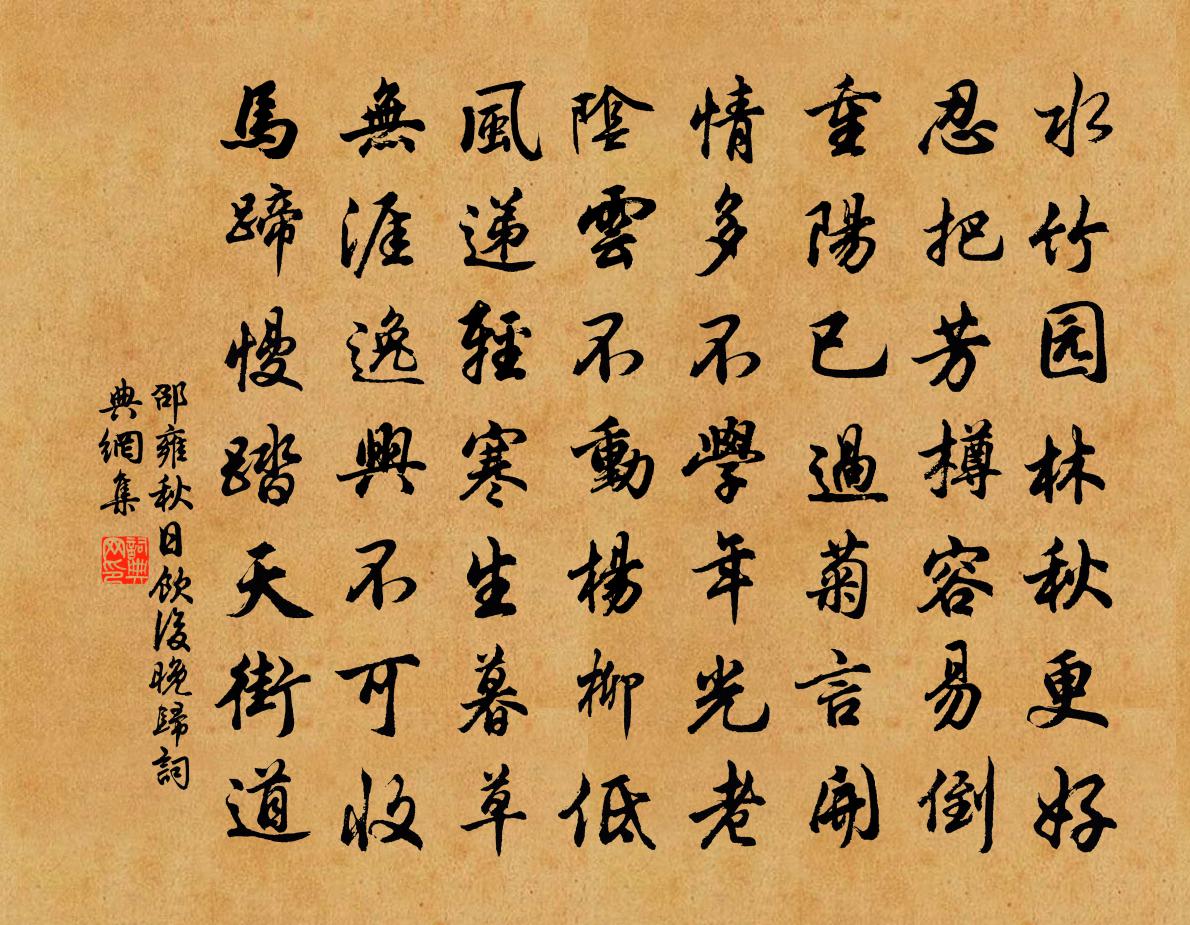 水竹园林秋更好
忍把芳樽容易倒
重陽已過菊言開
情多不學年光老
陰雲不動楊柳低
風递輕寒生暮草
無涯逸興不可收
馬蹄慢踏天街道
邵雍秋日飲後晚歸詞
典網集
詞典
网印